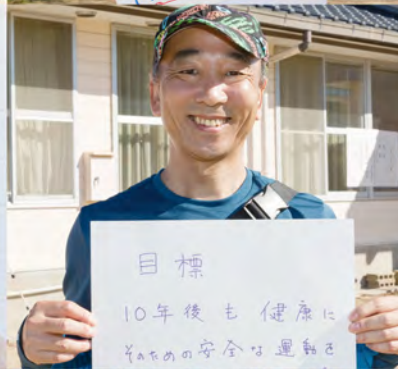 目標
10年後も健康に
そのための安全な運動を